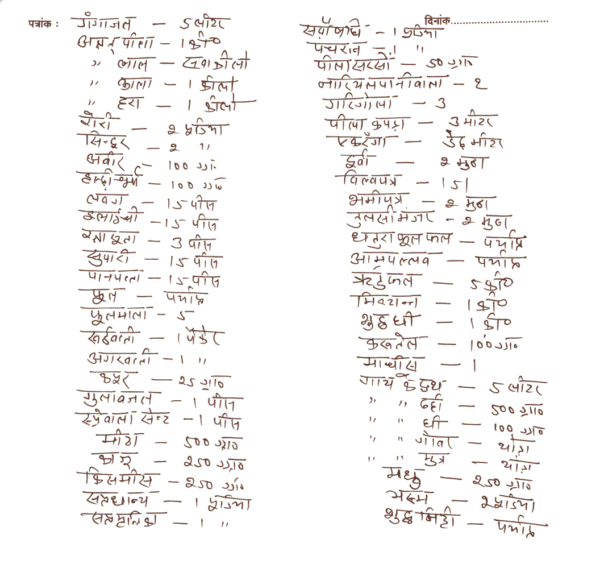 पत्रांक :
गंगाजल — 5 लीटर
अक्षत पीला — 1 की०
" लाल — सवा कीलो
" काला — 1 कीलो
" हरा — 1 कीलो
रोरी — 2 पुड़िया
सिन्दुर — 2 "
अवीर — 100 ग्रा०
हल्दी चूर्ण — 100 ग्रा०
लवंग — 15 पीस
इलाइची — 15 पीस
— 3 पीस
सुपारी — 15 पीस
पानपत्ता — 15 पीस
फूल — पर्याप्त
फूलमाला — 5
रूईवाती — 1 पैकेट
अगरवाती — 1 "
कपूर — 25 ग्रा०
गुलावजल — 1 पीस
स्प्रेवाला सेन्ट — 1 पीस
मीठा — 500 ग्रा०
काजू — 250 ग्रा०
किसमीस — 250 ग्रा०
सप्तधान्य — 1 पुड़िया
सप्तमृतिका — 1 "
दिनांक
सर्वौषधि — 1 पुड़िया
पंचरत्न — 1 "
पीला सरसो — 50 ग्रा०
नारियल पानीवाला — 2
गरिगोला — 3
पीला कपड़ा — 3 मीटर
एकरंगा — डेढ़ मीटर
दूर्वा — 2 मुठा
विल्वपत्र — 151
शमीपत्र — 2 मुठा
तुलसी मंजर — 2 मुठा
धतुरा फूल फल — पर्याप्त
आमपल्लव — पर्याप्त
— 5 की०
मिष्ठान्न — 1 की०
शुद्ध घी — 1 की०
— 100 ग्रा०
माचीस — 1
गाय के दुध — 5 लीटर
" " दही — 500 ग्रा०
" " घी — 100 ग्रा०
" " गोवर — थोड़ा
" " मुत्र — थोड़ा
मधु — 250 ग्रा०
भस्म — 2 पुड़िया
शुद्ध मिट्टी — पर्याप्त